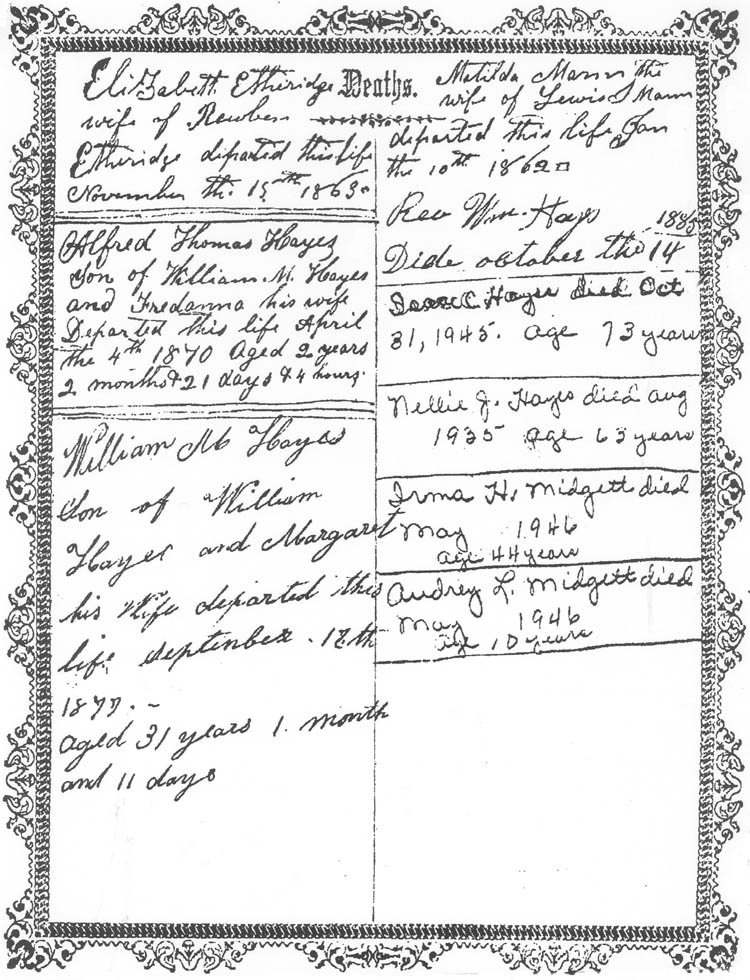 Deaths.
Elizabeth Etheridge
wife of Reuben
Etheridge departed this life
November th. 15th 1863
Alfred Thomas Hayes
Son of William. M. Hayes
and Fredanna his wife
Departed this life April
the 4th 1870 Aged 2 years
2 months & 21 days & 4 hours.
William M Hayes
Son of William
Hayes and Margaret
his Wife departed this
life September. 12th
1877. -
aged 31 years 1. month
and 11 days
Matilda Mann the
wife of Lewis S Mann
departed this life Jan
the 10th 1862
Rev Wm. Hays
Dide october the 14
Hayes died Oct
31, 1945. age 73 years
Nellie J. Hayes died aug
1935 age 63 years
Irma H. Midgett died
May 1946
age 44 years
Audrey L. Midgett died
May 1946
age 10 years